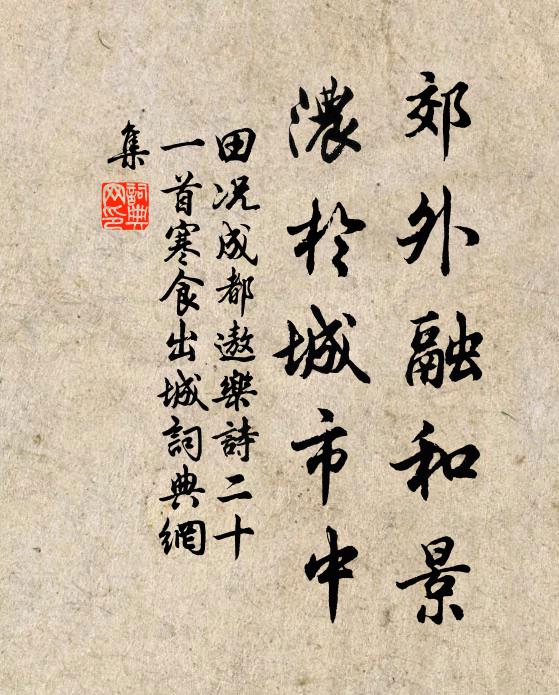 郊外融和景
濃於城市中
田况成都遨樂詩二十
一首寒食出城詞典網
集
詞典网印